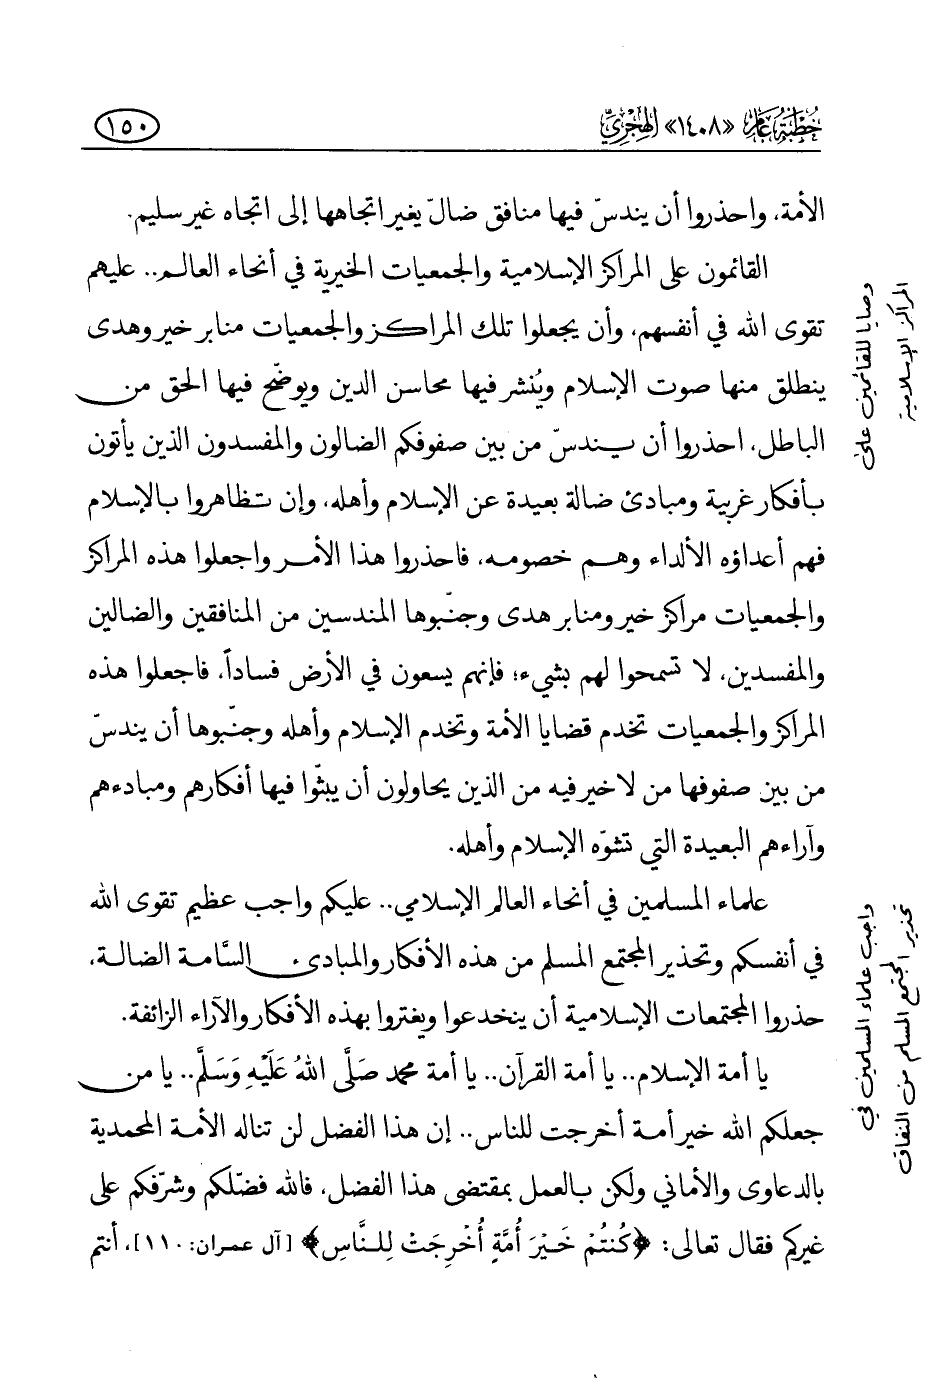 خُطْبَةُ عَامِ «١٤٠٨» الهِجْرِيِّ
١٥٠
الأمة، واحذروا أن يندسّ فيها منافق ضالّ يغير اتجاهها إلى اتجاه غير سليم.
القائمون على المراكز الإسلامية والجمعيات الخيرية في أنحاء العالم.. عليهم
تقوى الله في أنفسهم، وأن يجعلوا تلك المراكز والجمعيات منابر خير وهدى
ينطلق منها صوت الإسلام ويُنشر فيها محاسن الدين ويوضّح فيها الحق من
الباطل، احذروا أن يندسّ من بين صفوفكم الضالون والمفسدون الذين يأتون
بأفكار غريبة ومبادئ ضالة بعيدة عن الإسلام وأهله، وإن تظاهروا بالإسلام
فهم أعداؤه الألداء وهم خصومه، فاحذروا هذا الأمر واجعلوا هذه المراكز
والجمعيات مراكز خير ومنابر هدى وجنّبوها المندسين من المنافقين والضالين
والمفسدين، لا تسمحوا لهم بشيء؛ فإنهم يسعون في الأرض فساداً، فاجعلوا هذه
المراكز والجمعيات تخدم قضايا الأمة وتخدم الإسلام وأهله وجنّبوها أن يندسّ
من بين صفوفها من لا خير فيه من الذين يحاولون أن يبثّوا فيها أفكارهم ومباد‌ءهم
وآراءهم البعيدة التي تشوّه الإسلام وأهله.
علماء المسلمين في أنحاء العالم الإسلامي.. عليكم واجب عظيم تقوى الله
في أنفسكم وتحذير المجتمع المسلم من هذه الأفكار والمبادىء السَّامة الضالة،
حذروا المجتمعات الإسلامية أن ينخدعوا ويغتروا بهذه الأفكار والآراء الزائفة.
يا أمة الإسلام.. يا أمة القرآن.. يا أمة محمد صَلَّى اللهُ عَلَيْهِ وَسَلَّمَ.. يا من
جعلكم الله خير أمة أخرجت للناس.. إن هذا الفضل لن تناله الأمة المحمدية
بالدعاوى والأماني ولكن بالعمل بمقتضى هذا الفضل، فالله فضّلكم وشرّفكم على
غيركم فقال تعالى: ﴿كُنتُمْ خَيْرَ أُمَّةٍ أُخْرِجَتْ لِلنَّاسِ﴾ [آل عمران: ١١٠]، أنتم
وصايا للقائمين على
المراكز الإسلامية
واجب علماء المسلمين في
تحذير المجتمع المسلم من النفاق